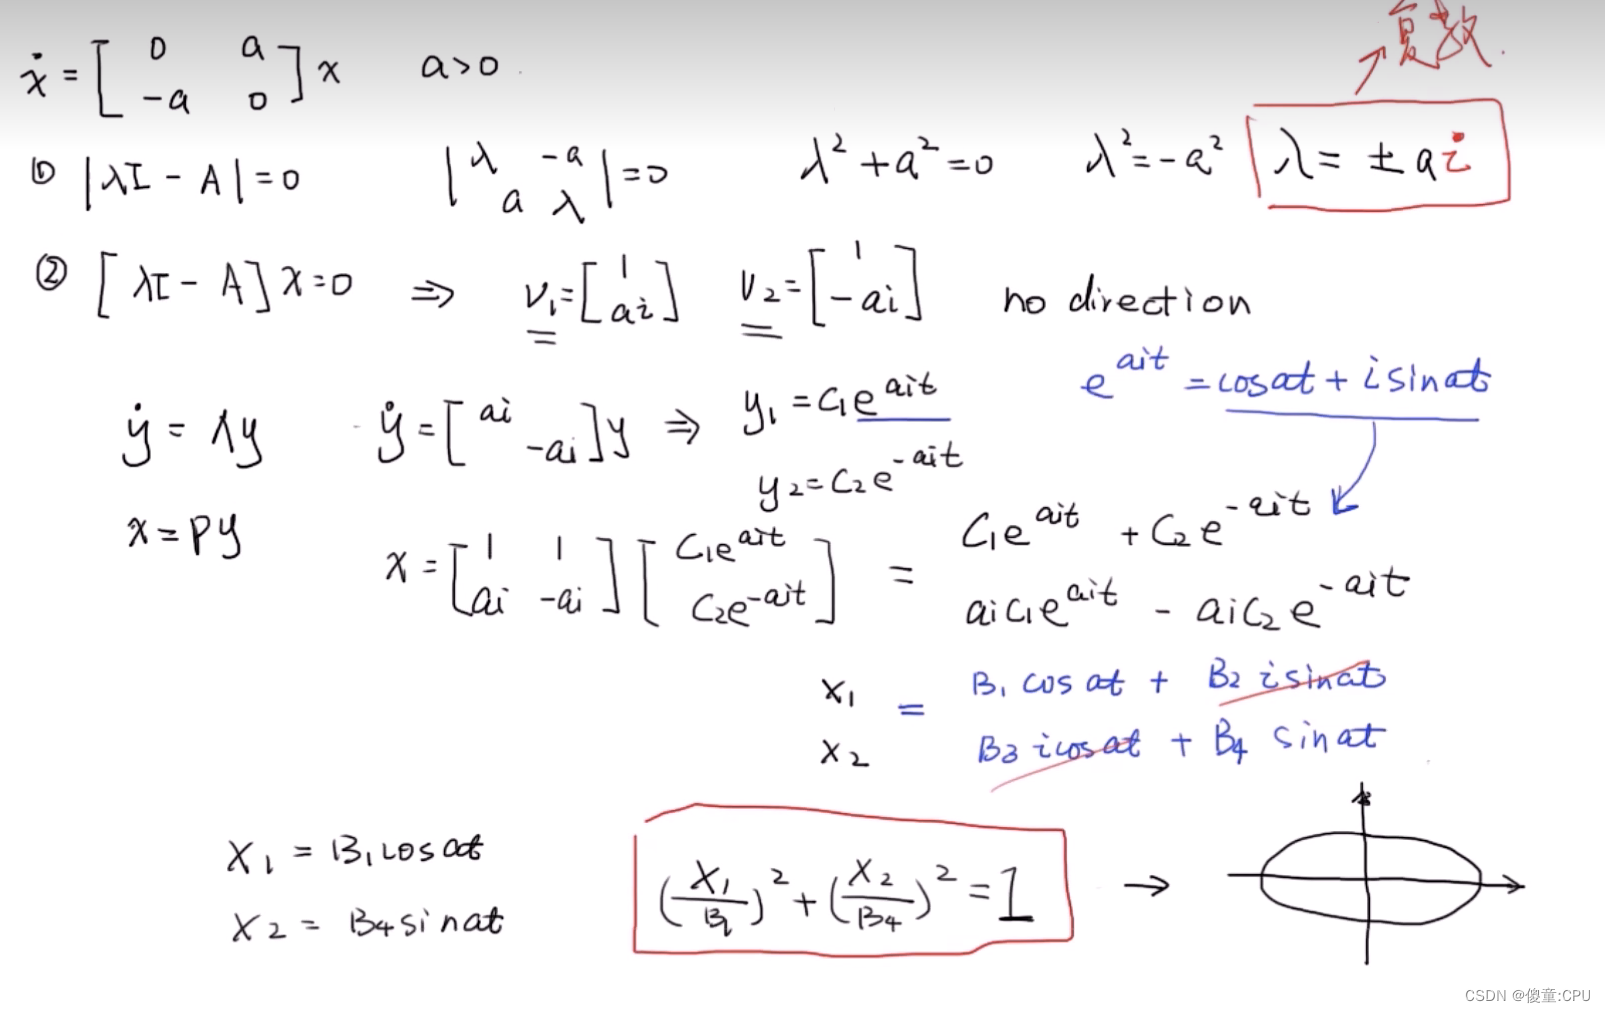 复数.
ẋ = [ 0 a ; -a 0 ] x a>0
① |λI - A| = 0 | λ -a ; a λ | = 0 λ² + a² = 0 λ² = -a² λ = ± ai
② [λI - A] x = 0 ⇒ v₁ = [ 1 ; ai ] v₂ = [ 1 ; -ai ] no direction
e^{ait} = cosat + isinat
ẏ = Λy ẏ = [ ai ; -ai ] y ⇒ y₁ = C₁e^{ait}
y₂ = C₂e^{-ait}
x = Py x = [ 1 1 ; ai -ai ] [ C₁e^{ait} ; C₂e^{-ait} ] = C₁e^{ait} + C₂e^{-ait}
aiC₁e^{ait} - aiC₂e^{-ait}
x₁ = B₁ cosat + B₂ isinat
x₂ B₃ icosat + B₄ sinat
x₁ = B₁cosat
x₂ = B₄sinat
(x₁/B₁)² + (x₂/B₄)² = 1 →
CSDN @傻童:CPU